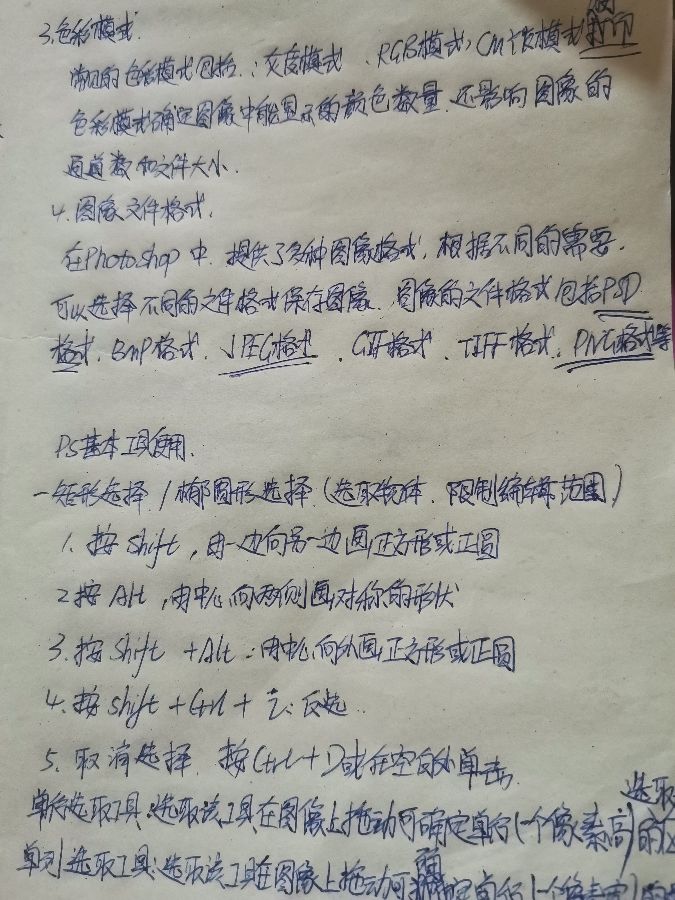 3.色彩模式.
常见的色彩模式包括:灰度模式、RGB模式,CMYK模式 印
色彩模式确定图像中能显示的颜色数量,还影响图像的
通道数和文件大小.
4.图像文件格式.
在Photoshop中,提供了多种图像格式,根据不同的需要,
可以选择不同的文件格式保存图像,图像的文件格式包括PSD
格式,BMP格式、JPEG格式、GIF格式、TIFF格式、PNG格式等
PS基本工具使用.
一矩形选择/椭圆形选择(选取物体,限制编辑范围)
1.按Shift,由一边向另一边画正方形或正圆
2按Alt,由中心向两侧画对称的形状
3.按Shift+Alt:由中心向外画正方形或正圆
4.按Shift+Ctrl+i:反选
5.取消选择,按Ctrl+D或在空白外单击.
选取
单行选取工具:选取该工具在图像上拖动可确定单行(一个像素高)的
单列选取工具:选取该工具在图像上拖动可确定单行(一个像素宽)的